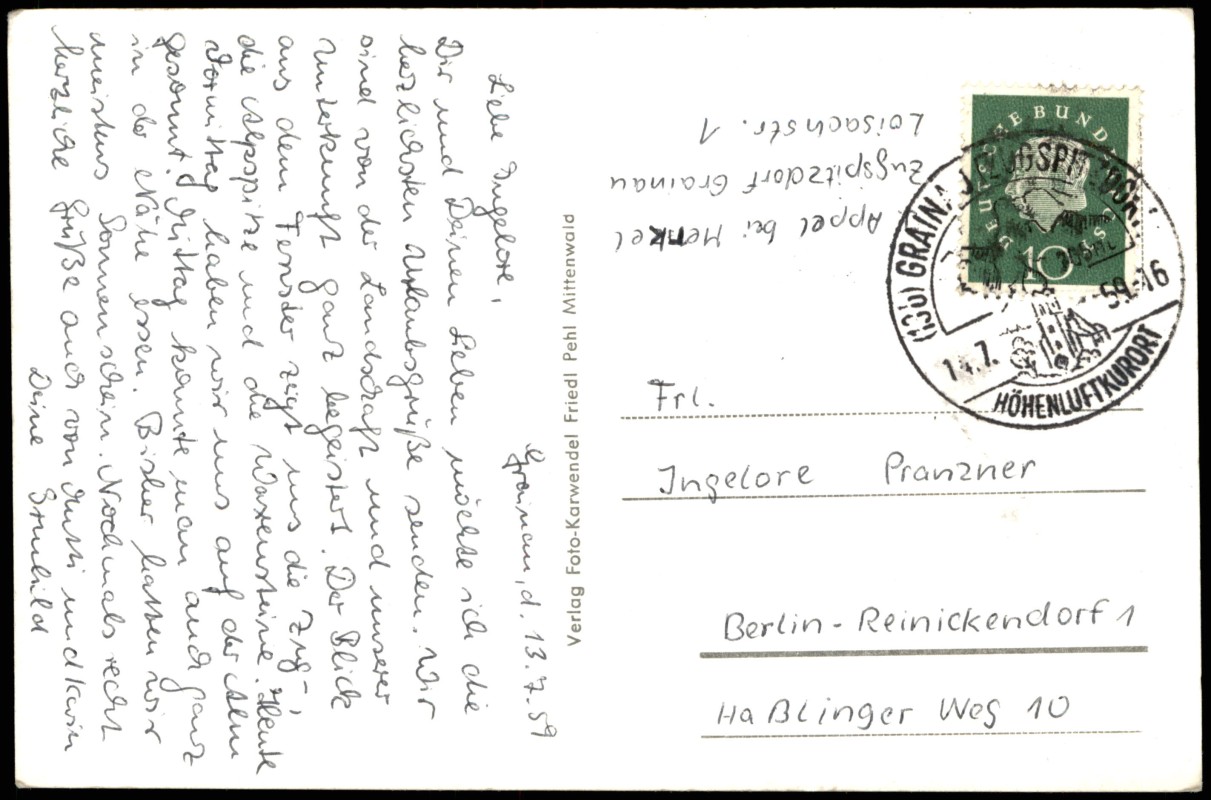 Grainau, d. 13.7.59
Liebe Ingelore,
Dir und Deinen Lieben möchte ich die
herzlichsten Urlaubsgrüße senden. Wir
sind von der Landschaft und unserer
Unterkunft ganz begeistert. Der Blick
aus dem Fenster zeigt uns die Zug-,
die Alpspitze und die Waxensteine. Heute
Vormittag haben wir uns auf der Alm
gesonnt. Mittag konnte man auch ganz
in der Nähe essen. Bisher hatten wir
meistens Sonnenschein. Nochmals recht
herzliche Grüße auch von Mutti und Karin
Deine Brunhild
Verlag Foto-Karwendel Friedl Pehl Mittenwald
Appel bei Menkel
Zugspitzdorf Grainau
Loisachstr. 1
DEUTSCHE BUNDESPOST
10
(13b) GRAINAU ZUGSPITZDORF
14.7. 59-16
HÖHENLUFTKURORT
Frl.
Ingelore Pranzner
Berlin-Reinickendorf 1
Haßlinger Weg 10